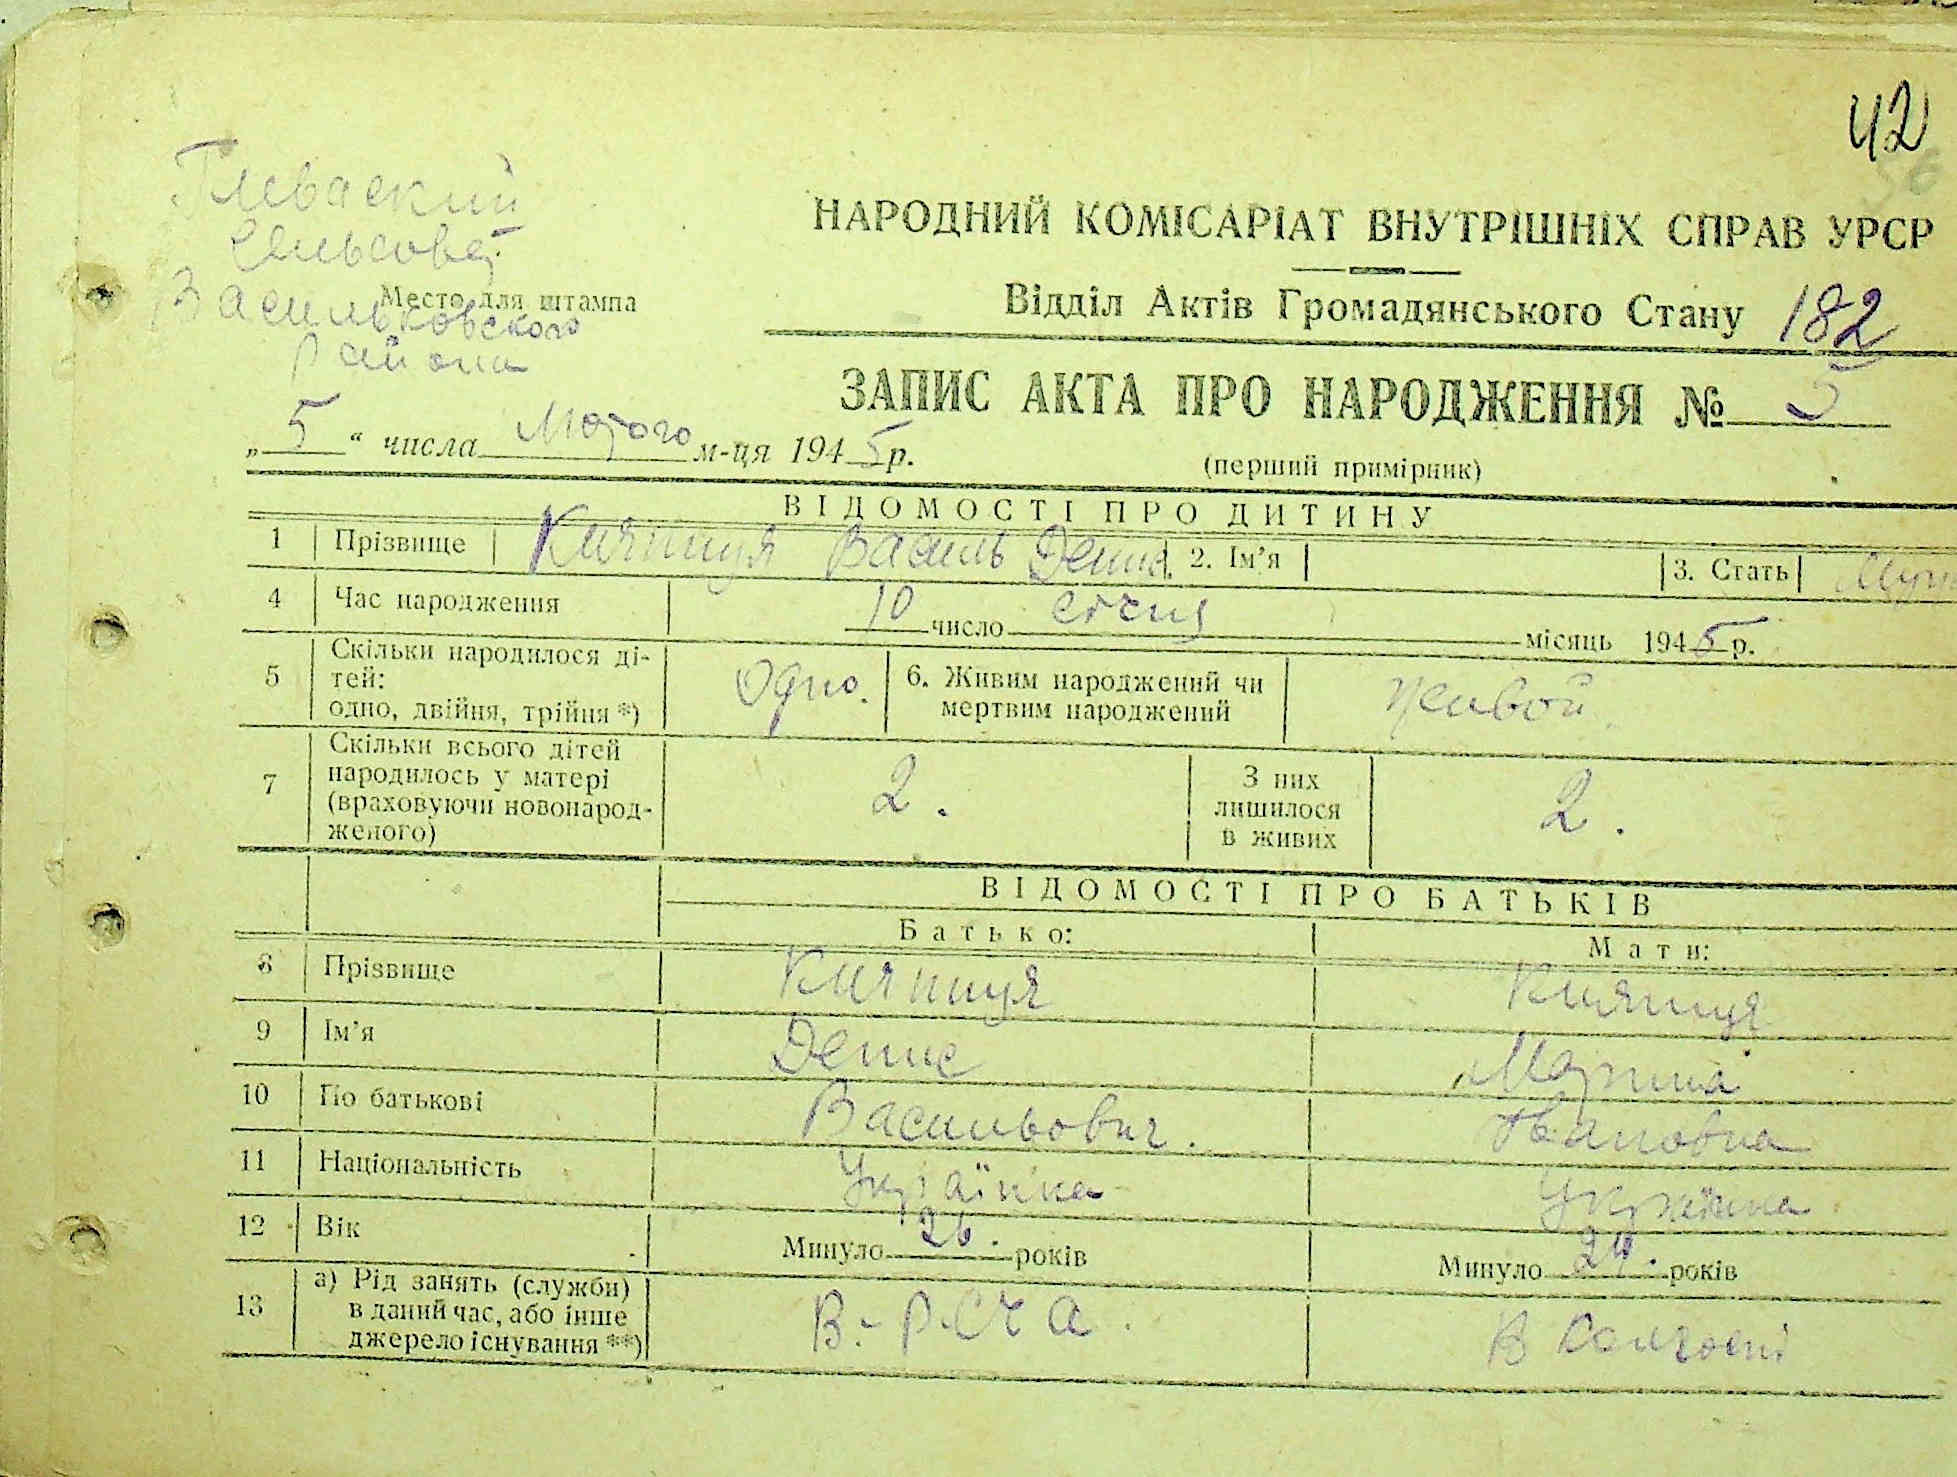 42
Глеваский
сельсовет
Место для штампа
Васильковского
Района
НАРОДНИЙ КОМІСАРІАТ ВНУТРІШНІХ СПРАВ УРСР
Відділ Актів Громадянського Стану 182
ЗАПИС АКТА ПРО НАРОДЖЕННЯ № 5
„ 5 “ числа Лютого м-ця 1945 р.
(перший примірник)
ВІДОМОСТІ ПРО ДИТИНУ
1 Прізвище Кияниця Василь Денис. 2. Ім’я 3. Стать
4 Час народження 10 число січня місяць 1945 р.
5 Скільки народилося ді-
тей:
одно, двійня, трійня *) Одно. 6. Живим народжений чи
мертвим народжений живой
7 Скільки всього дітей
народилось у матері
(враховуючи новонарод-
женого) 2. З них
лишилося
в живих 2.
ВІДОМОСТІ ПРО БАТЬКІВ
Батько: Мати:
8 Прізвище Кияниця Кияниця
9 Ім’я Денис Марина
10 По батькові Васильович. Івановна
11 Національність Українка Українка
12 Вік Минуло 26. років Минуло 24. років
13 а) Рід занять (служби)
в даний час, або інше
джерело існування **) В.-Р.С.Ч.А. В Колгоспі